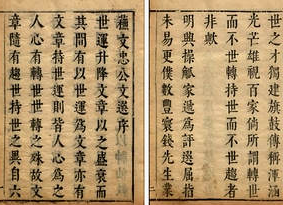 蘓文忠公文選序
世運升降文章以之盛衰而
其間有以世運爲文章亦有
文章持世運則皆人心爲之
人心有轉世世轉之殊故文
章隨有趨世持世之異自六
世之才獨建旗鼓傳稱渾涵
光芒雄視百家倘所謂轉世
而不世轉持世而不世趨者
非歟
明興操觚家遞爲評選屈指
未易更僕數豐寰錢先生業